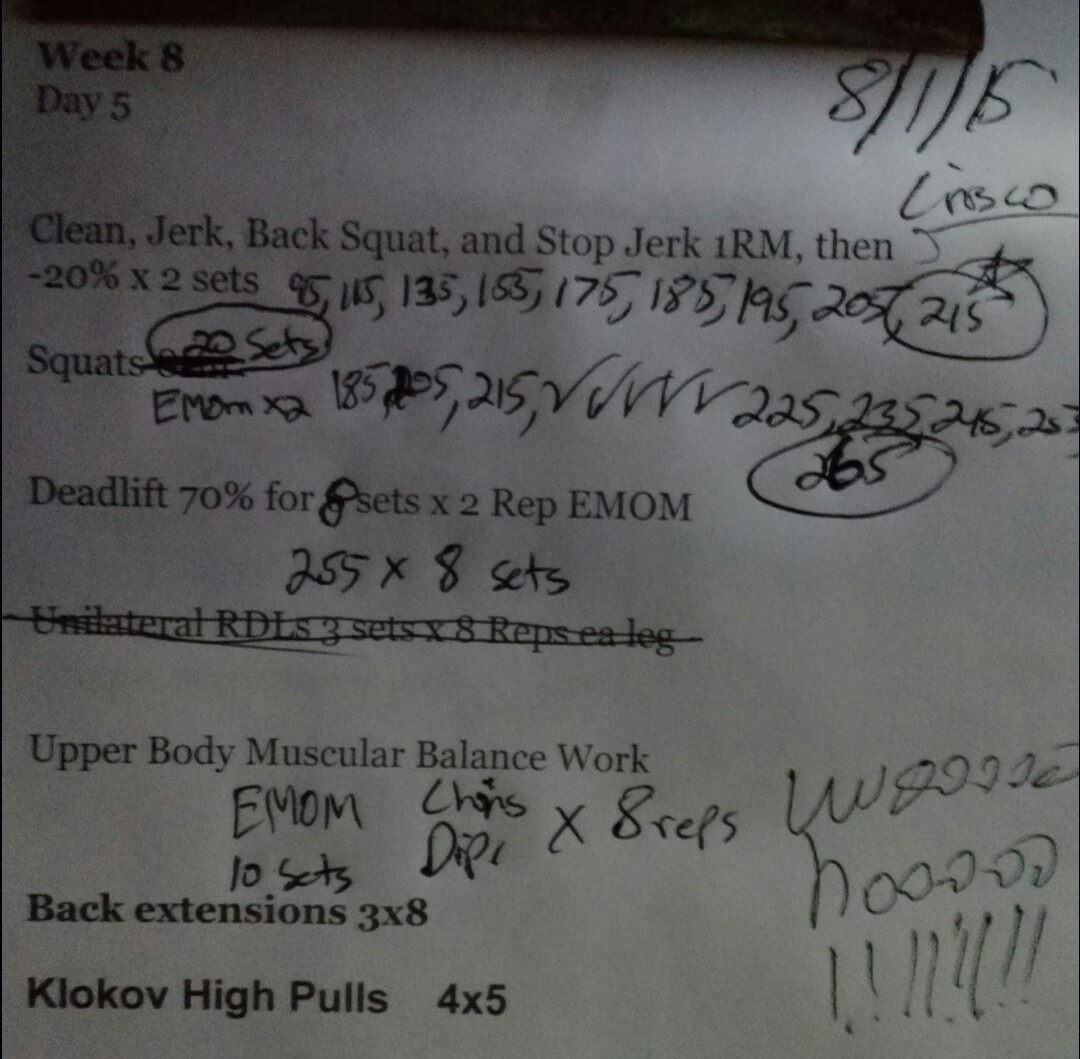 Week 8
Day 5
8/1/15
Clean, Jerk, Back Squat, and Stop Jerk 1RM, then
-20% x 2 sets 95, 115, 135, 155, 175, 185, 195, 205, 215
20 Sets
Squats
EMOM x2 185, 205, 215, ✓✓✓✓✓✓ 225, 235, 245, 255
265
Deadlift 70% for 8 sets x 2 Rep EMOM
255 x 8 sets
Unilateral RDLs 3 sets x 8 Reps ea leg
Upper Body Muscular Balance Work
EMOM Chins x 8 reps
10 Sets Dips
Back extensions 3x8
Klokov High Pulls 4x5
hooooo
!!!!!!!!